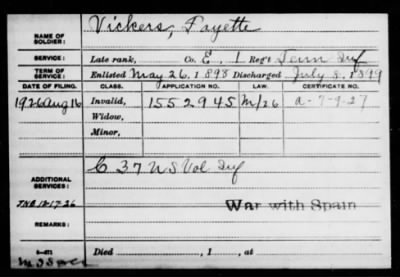 NAME OF SOLDIER: Vickers, Fayette
SERVICE: Late rank, Co. E, 1 Reg't Tenn Inf
TERM OF SERVICE: Enlisted May 26, 1898 Discharged July 8, 1899
DATE OF FILING. CLASS. APPLICATION NO. LAW. CERTIFICATE NO.
1926 Aug 16 Invalid, 1552945 M/26 a-7-9-27
Widow,
Minor,
ADDITIONAL SERVICES: C 37 U S Vol Inf
JNB 12-17-26 War with Spain
REMARKS:
Died , 1 , at